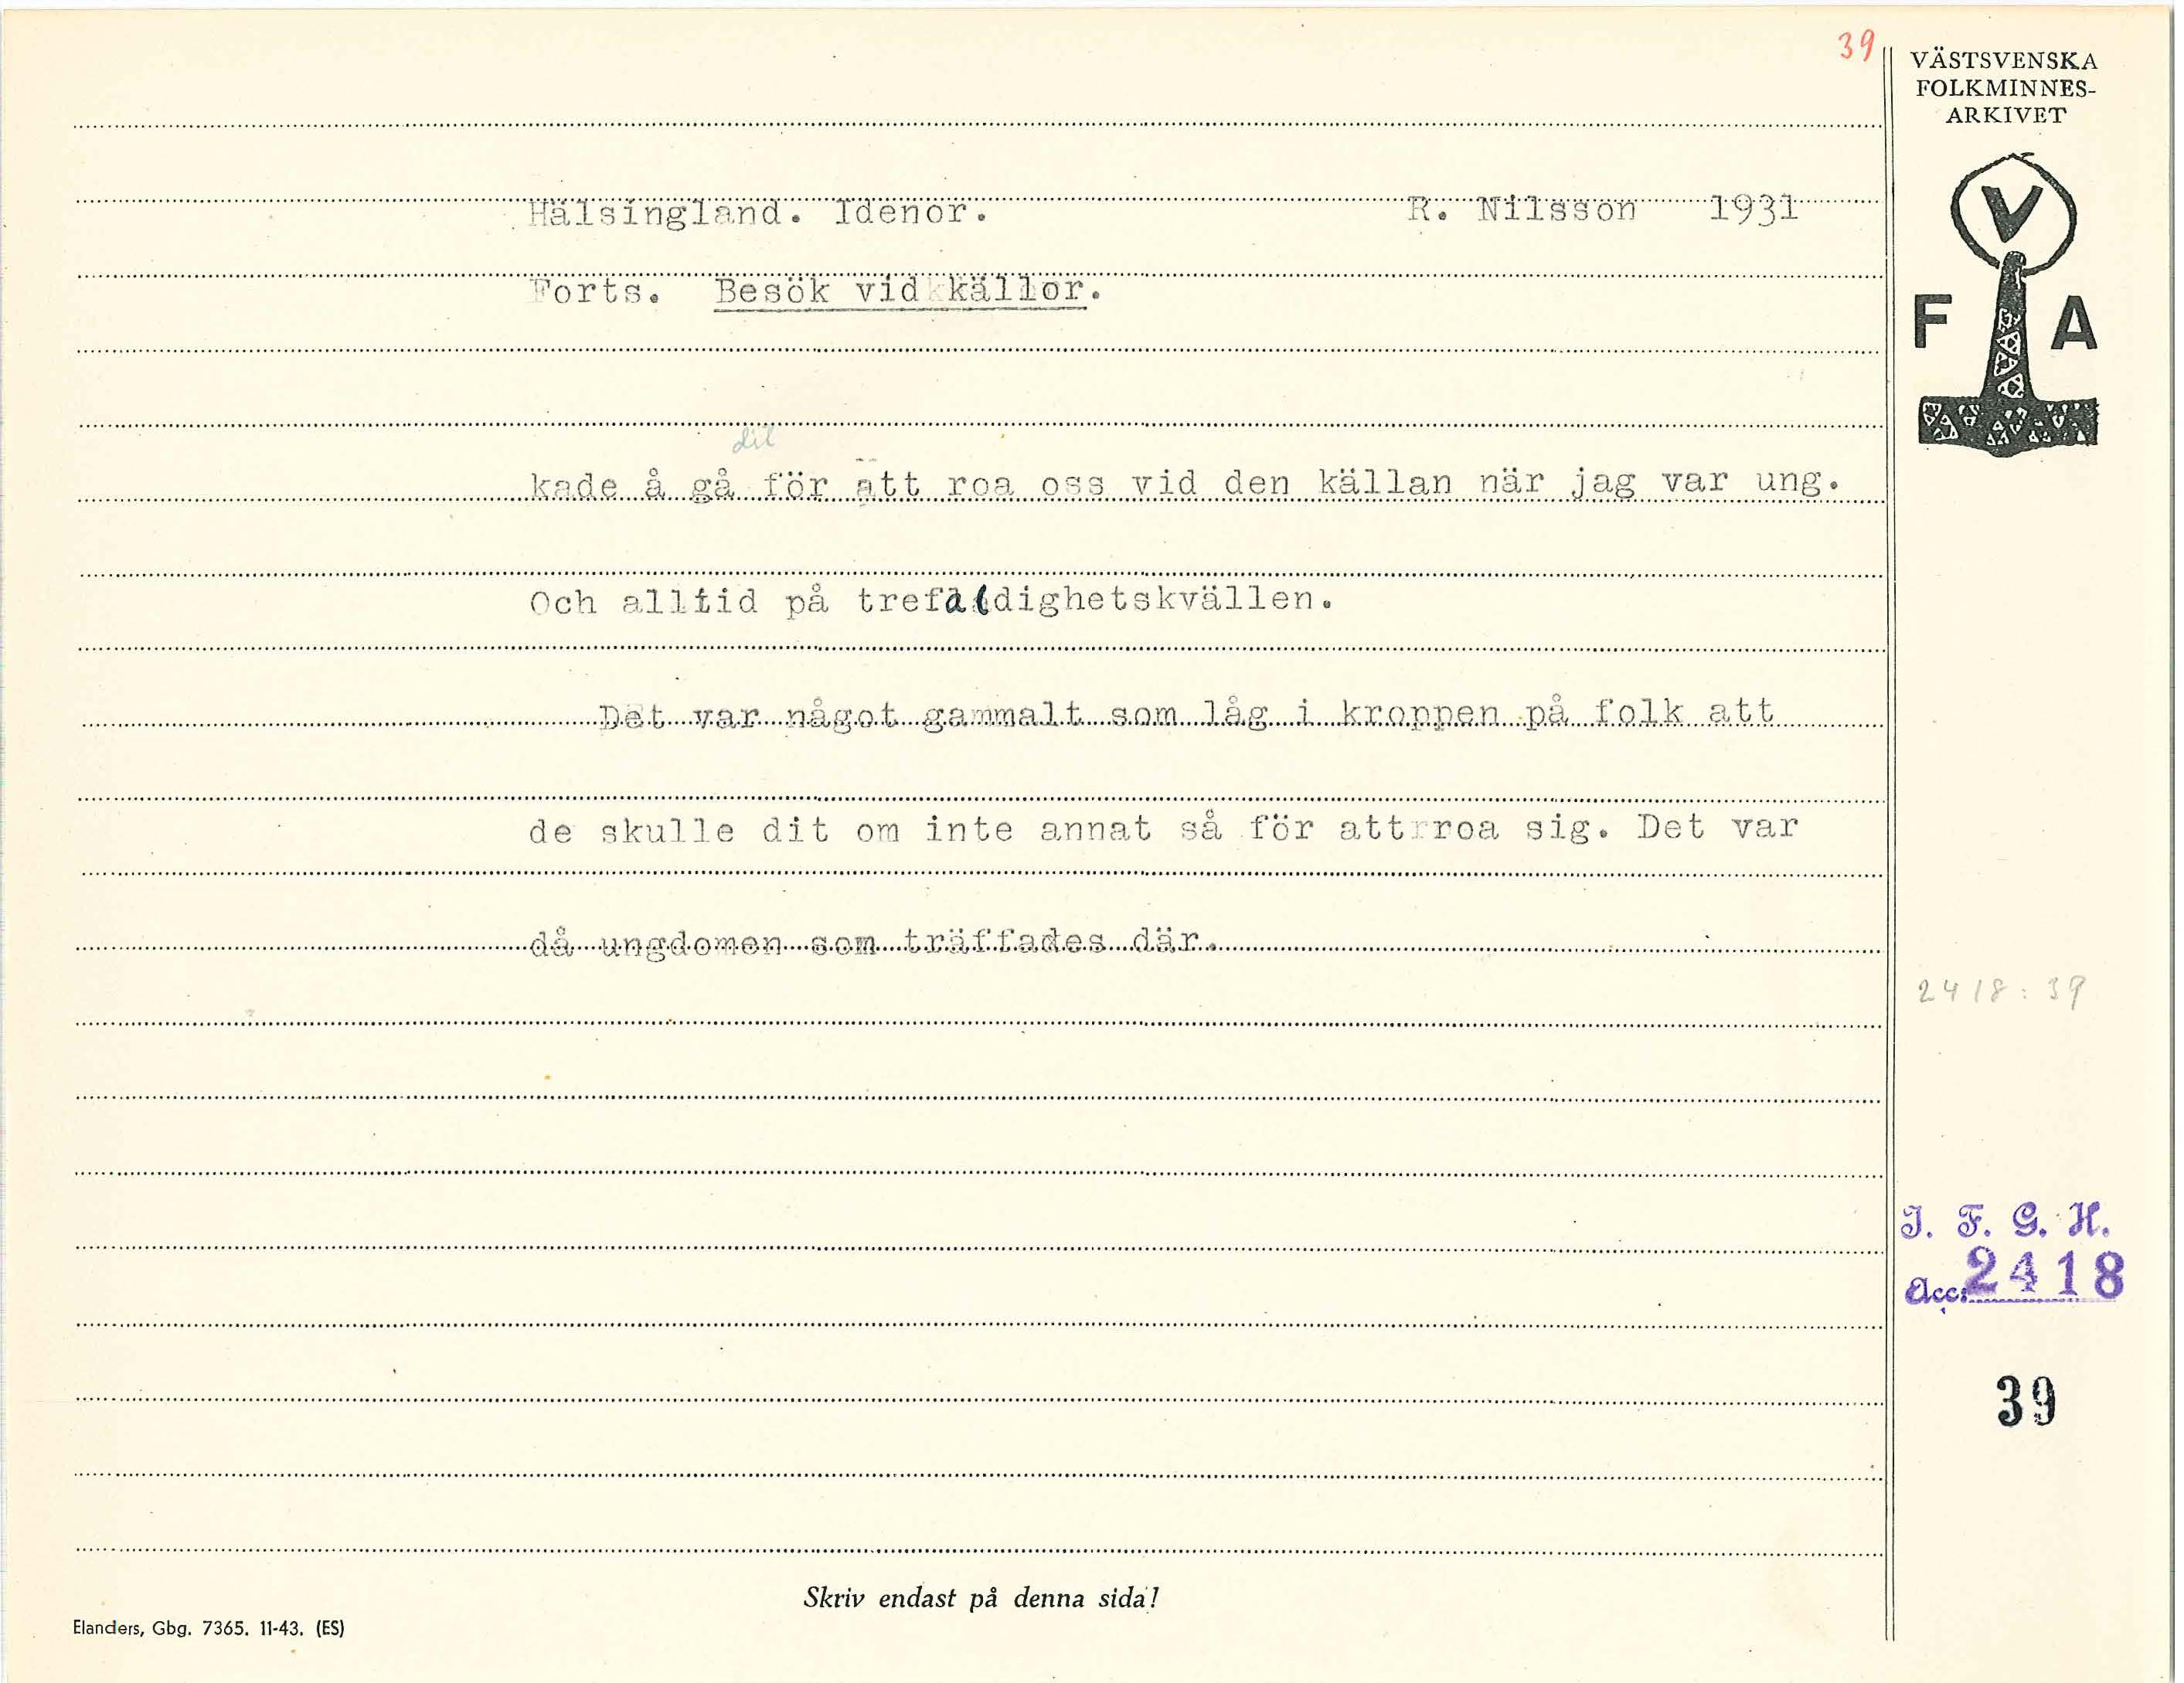 39
VÄSTSVENSKA
FOLKMINNES-
ARKIVET
V
F A
Hälsingland. Idenor. R. Nilsson 1931
Forts. Besök vid källor.
dit
kade å gå för att roa oss vid den källan när jag var ung.
Och alltid på trefaldighetskvällen.
Det var något gammalt som låg i kroppen på folk att
de skulle dit om inte annat så för att roa sig. Det var
då ungdomen som träffades där.
2418:39
I. F. G. H.
Acc. 2418
39
Skriv endast på denna sida!
Elanders, Gbg. 7365. 11-43. (ES)